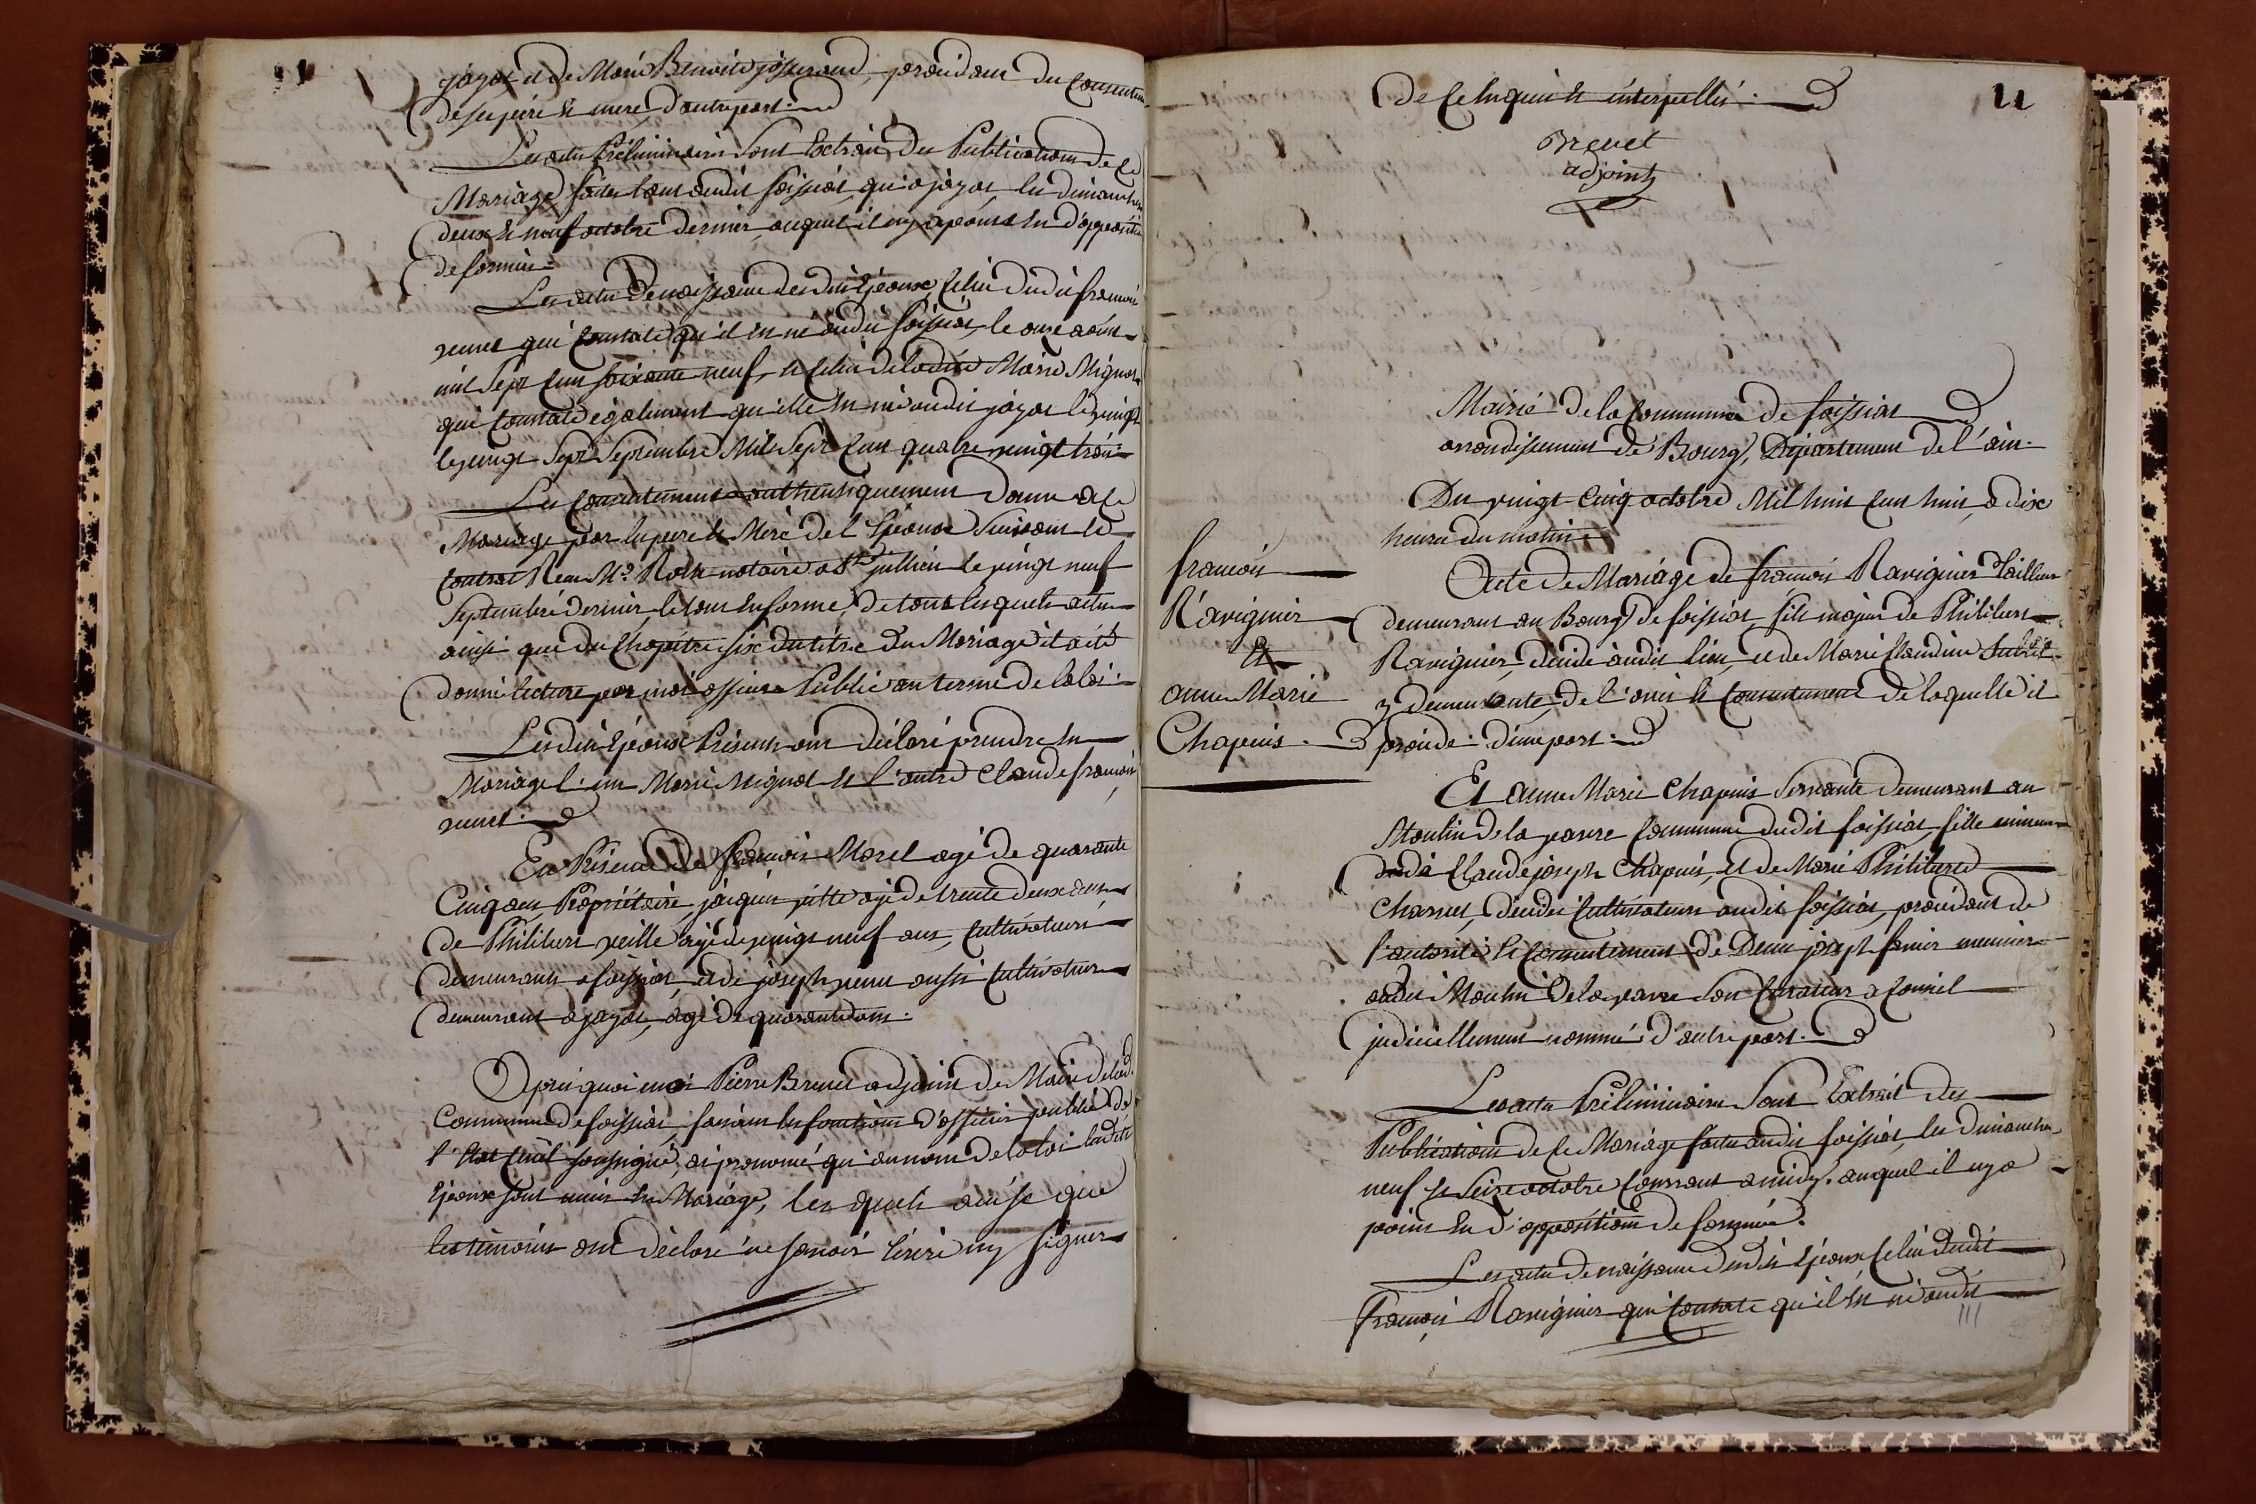 jayat et de Marie Benoite josserand, procedant du Consentem
de ses pere et mere, d'autre part.
Les actes Préliminaires Sont Extraits des Publications de Ce
Mariage faites tant audit foissiat, qu'a jayat, les dimanches
deux et neuf octobre dernier, auquel il n'y a point eu d'opposition
de formée.
Les actes De naissance desdits Epoux, Celui dudit francois
qui Constate qu'il est né audit foissiat, le onze aout
mil Sept Cent soixante neuf, et Celui de ladite Marie Mignot
qui Constate également qu'elle est né audit jayat le vingt
le vingt Sept Septembre Mil Sept Cent quatre vingt trois
Les Consentements authentiquement donné a Ce
Mariage par les pere et Mere de l'Epouse Suivant le
Contrat Recu Me notaire a St jullien le vingt neuf
Septembre dernier, le tout en forme, de tous lesquels actes
ainsi que du Chapitre six du titre du Mariage il a été
donné lecture par moi officier Public au terme de la loi.
Lesdits Epoux Présents ont déclaré prendre en
Mariage l'un Marie Mignot et l'autre Claude francois
En Présence de francois Morel agé de quarante
Cinq ans, Propriétaire, agé de trente deux ans
de Philibert agé de vingt neuf ans, Cultivateurs
demeurants a foissiat, et de joseph aussi Cultivateur
demeurant a jayat, agé de quarante ans.
Apres quoi moi Pierre Brevet adjoint du Maire de lad.
Commune de foissiat, faisant les fonctions d'officier public de
l'Etat Civil soussigné, ai prononcé qu'au nom de la loi lesdits
Epoux sont unis en Mariage, les quels ainsi que
les témoins ont déclaré ne savoir écrire ny signer
de Ce Enquis et interpellés.
11
Brevet
adjoint
Mairie de la Commune de foissiat
arrondissement de Bourg, Département de l'ain.
Du vingt Cinq octobre Mil huit Cent huit, a dix
heure du matin.
francois
Raviginier
Et
anne Marie
Chapuis.
Acte de Mariage de francois Raviginier Tailleur
demeurant au Bourg de foissiat, fils majeur de Philibert
Raviginier, décédé audit lieu, et de Marie Claudine
y demeurante, de l'avis et Consentement de laquelle il
procede. d'une part.
Et anne Marie Chapuis Servante demeurant au
Moulin de la parre Commune dudit foissiat, fille mineure
de Claude joseph Chapuis, et de Marie Philiberte
Charnet, décédés Cultivateurs audit foissiat, procédant de
l'autorité et Consentement de Denis joseph meunier
audit Moulin de la parre Son Curateur a Conseil
judiciellement nommé d'autre part.
Les actes Préliminaires Sont Extrait des
Publications de Ce Mariage faites audit foissiat, les dimanches
neuf et Seize octobre Courant a midy. auquel il n'y a
point eu d'opposition de formée.
Les actes de naissance desdits Epoux Celui dudit
francois Raviginier qui Constate qu'il est né audit